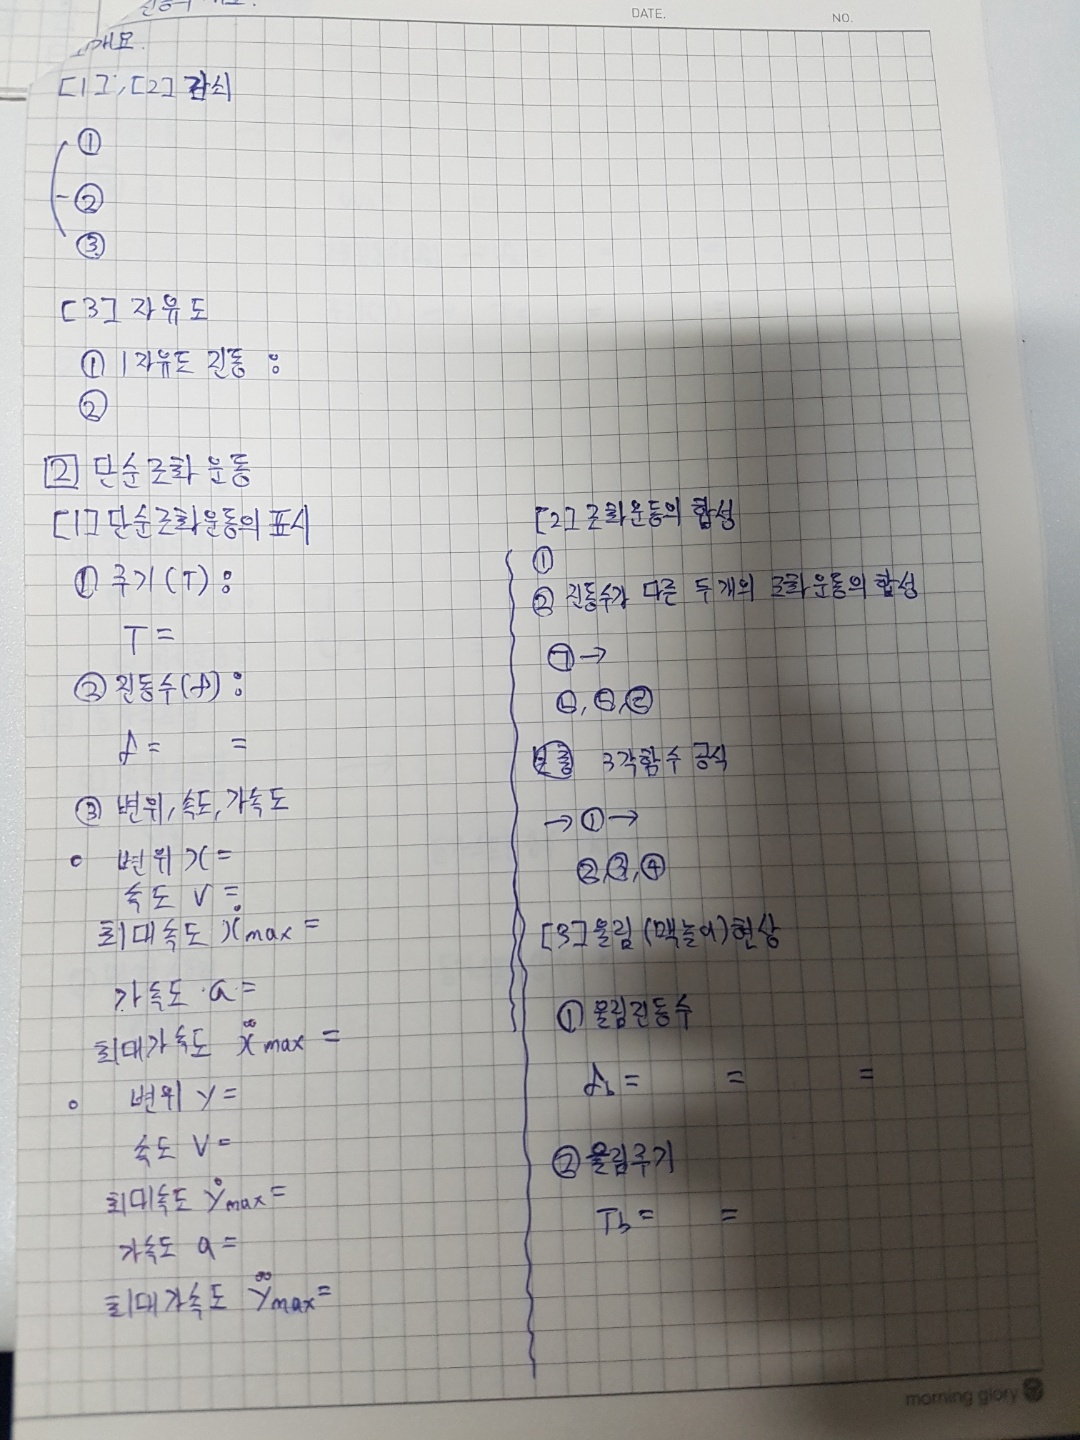 DATE.
NO.
개요.
[1], [2] 감쇠
①
②
③
[3] 자유도
① 1자유도 진동 :
②
[2] 단순조화 운동
[1] 단순조화운동의 표시
① 주기(T) :
T =
② 진동수(f) :
f = =
③ 변위, 속도, 가속도
변위 x =
속도 v =
최대속도 ẋmax =
가속도 a =
최대가속도 ẍmax =
변위 y =
속도 v =
최대속도 ẏmax =
가속도 a =
최대가속도 ÿmax =
[2] 조화운동의 합성
①
② 진동수가 다른 두개의 조화운동의 합성
㉠ →
㉡, ㉢, ㉣
3각함수 공식
→ ① →
②, ③, ④
[3] 울림(맥놀이)현상
① 울림진동수
fb = = =
② 울림주기
Tb = =
morning glory